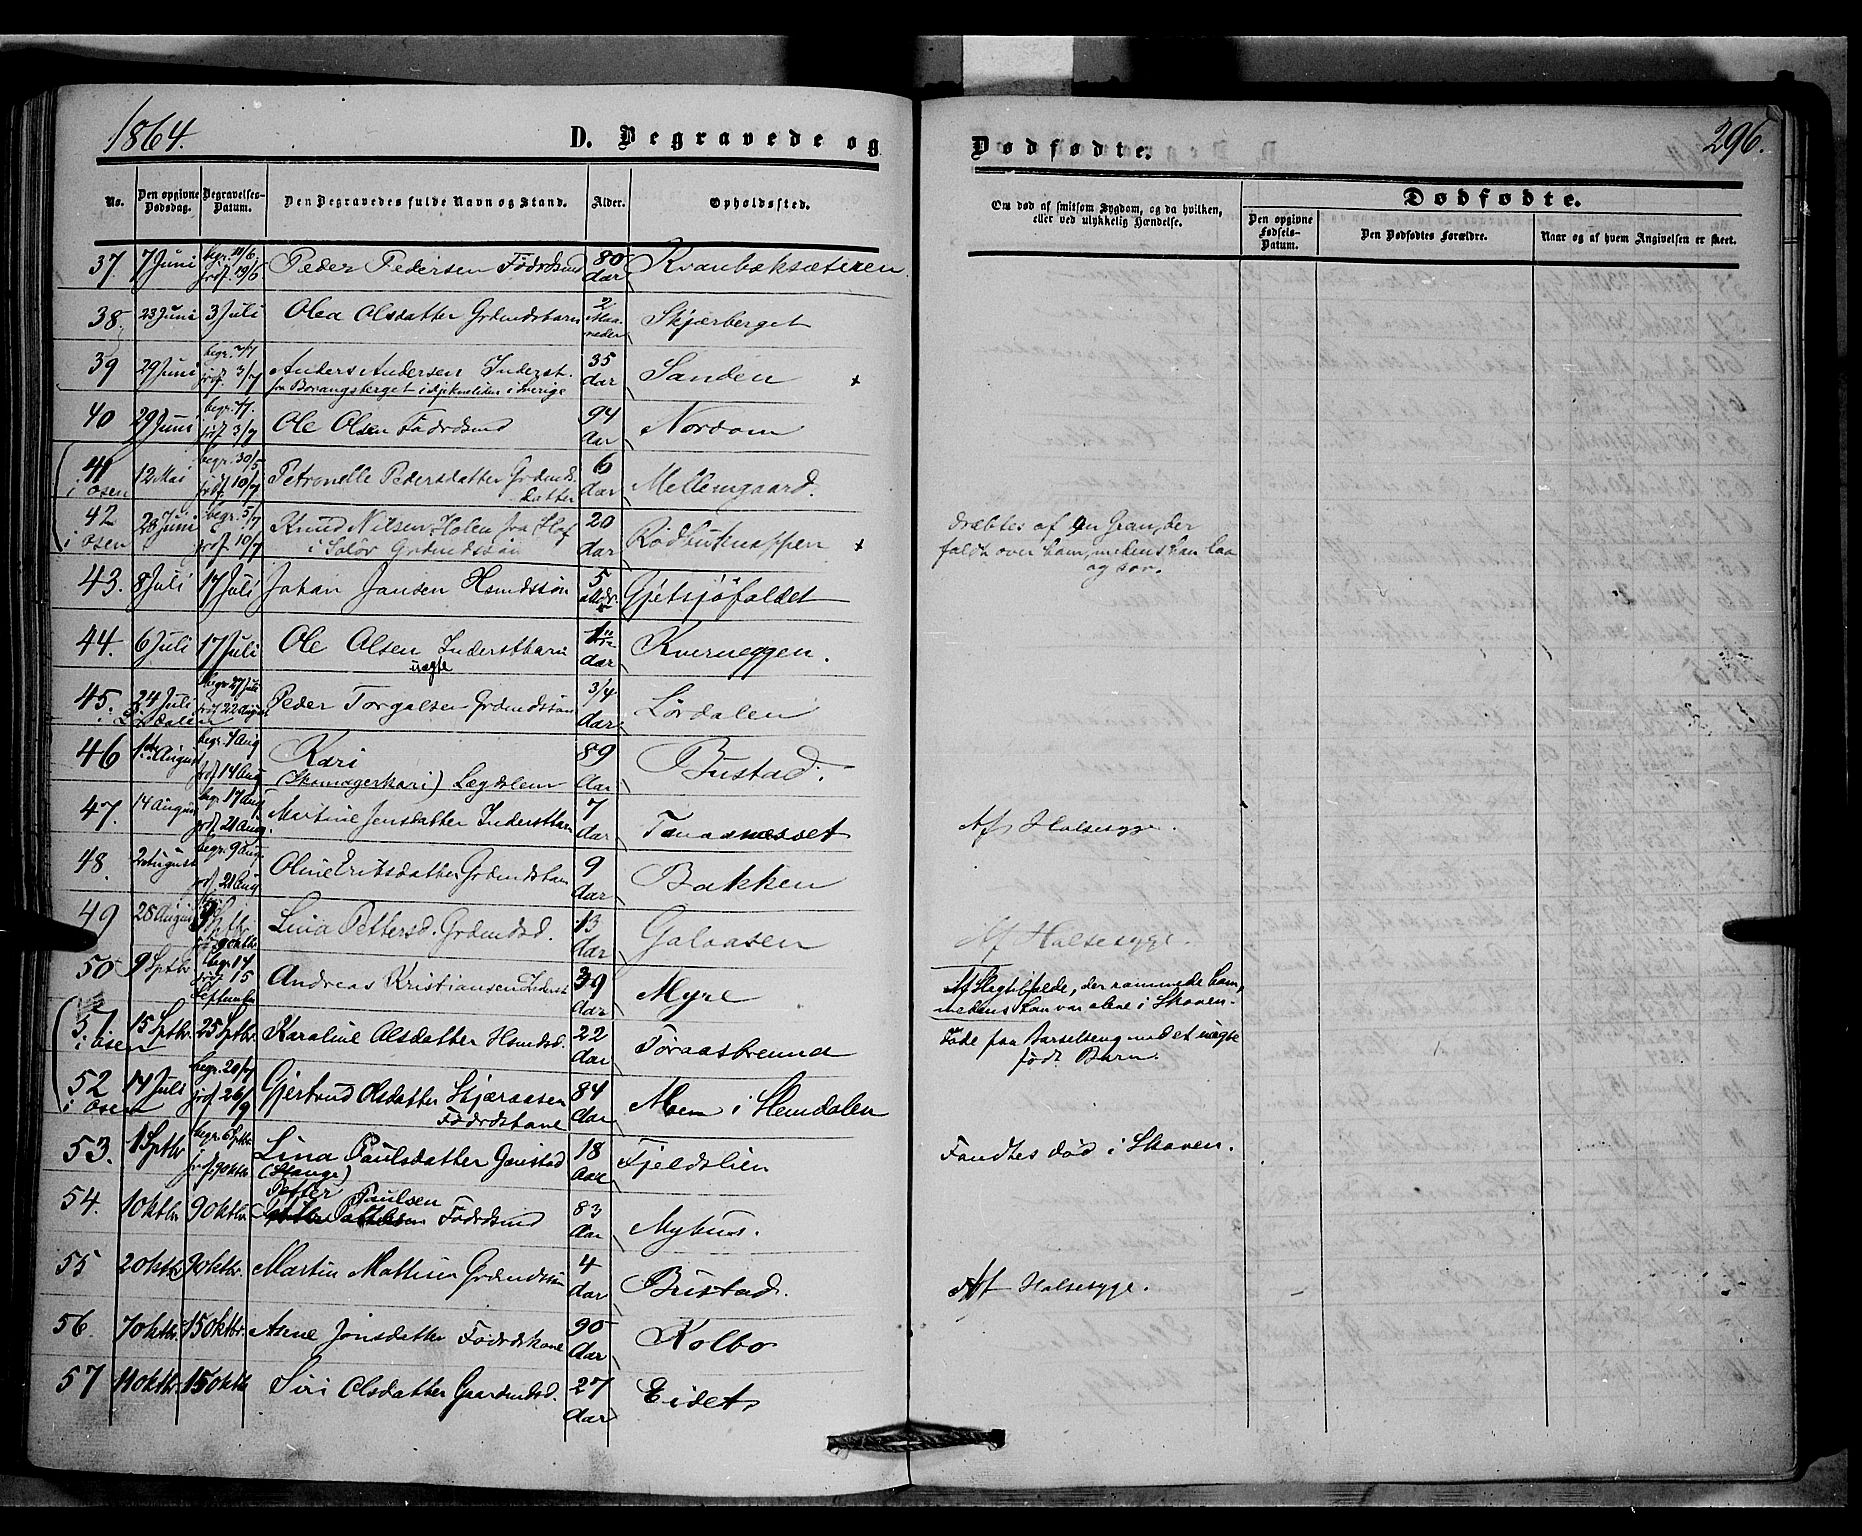 1864.
D. Begravede og
Dødfødte.
296.
No.
Den opgivne Dødsdag.
Begravelses-Datum.
Den Begravedes fulde Navn og Stand.
Alder.
Opholdssted.
Om død af smitsom Sygdom, og da hvilken,
eller ved ulykkelig Hændelse.
Dødfødte.
Den opgivne Fødsels-Datum.
Den Dødfødtes Forældre.
Naar og af hvem Angivelsen er skeet.
37. 7 Juni begr. 11/6 jrdf. 19/6 Peder Pedersen Födrdsmd 80 Aar Kvanbæksæteren
38. 23 Juni 3 Juli Olea Olsdatter Grdmdsbarn 2 Maaneder Skjærberget
39 29 Juni begr. 2/7 jrdf 3/7 Anders Andersen Inderst. 35 Aar Sanden +
fra Borangsberget i i Sverige
40 29 Juni begr. /7. jrdf 3/7 Ole Olsen Födrdsmd 94 Aar Nordom
41 i Osen 12 Mai begr. 30/5 jrdf. 10/7 Petronelle Pedersdatter Grdmds. datter 6 Aar Mellemgaard.
42 i Osen 28 Juni begr. 5/7 jrdf. 10/7 Knud Nilsen Holen fra Hof 20 Aar Rödbutknappen +
i Solör Grdmdssön
dræbtes af en Gran, der
faldt over ham, medens han laa
og sov.
43. 8 Juli 17 Juli Johan Jansen Hsmdssön 5 Mdr. Gjetsjöfaldet
44. 6 Juli 17 Juli Ole Olsen Inderstbarn uægte Aar Kverneggen.
45. i Lördalen 24 Juli begr 27 Juli jrdf 22 August Peder Torgalsen Grdmdssön 3/4 Aar Lördalen
46 1ste August begr. 7 Aug jrdf 14 Aug Kari 89 Aar Bustad.
(Skomagerkari) Lægdslem
47. 14 August begr. 17 Aug. jrdf. 21 Aug. Martine Jensdatter Inderstbarn 7 Aar Tanaanesset Af Halsesyge.
48. 2 August begr. 9 Aug. jrdf 21 Aug Oline Eriksdatter Grdmdsbarn 9 Aar Bakken
49 28 August Sptbr. jrdf. 9 Oktbr. Lina Pettersd. Grdmdsd. 13 Aar Galaasen Af Halsesyge.
50 9 Sptbr begr. 14 jrdf 15 September Andreas Kristiansen Inderst 39 Aar Myre Af Slagtilfælde, der rammede ham,
medens han var alene i Skoven.
51. i Osen 15 Sptbr. 25 Sptbr. Karoline Olsdatter Hsmdsd. 22 Aar Töraasbrenna Døde paa Barselseng med et uægte
födt Barn.
52 i Osen 14 Juli begr. 20/7 jrdf 26/9 Gjertrud Olsdatter Skjæraasen 84 Aar Moen i Slemdalen
Födrdskone
53. 1 Sptbr begr. 6 Sptbr. jrdf. 9 Oktbr. Lina Paulsdatter 18 Aar Fjeldslien Fandtes död i Skoven.
(Stange)
54. 1 Oktbr 9 Oktbr. Petter Paulsen Födrdsmd 83 Aar Myhus.
55 2 Oktbr 9 Oktbr. Martin Mathisen Grdmdssön 4 Aar Bustad. Af Halsesyge.
56. 7 Oktbr 15 Oktbr. Asene Jonsdatter Födrdskone 90 Aar Kolbo
57 11 Oktbr. 15 Oktbr Siri Olsdatter Gaardmdsd. 27 Aar Eidet